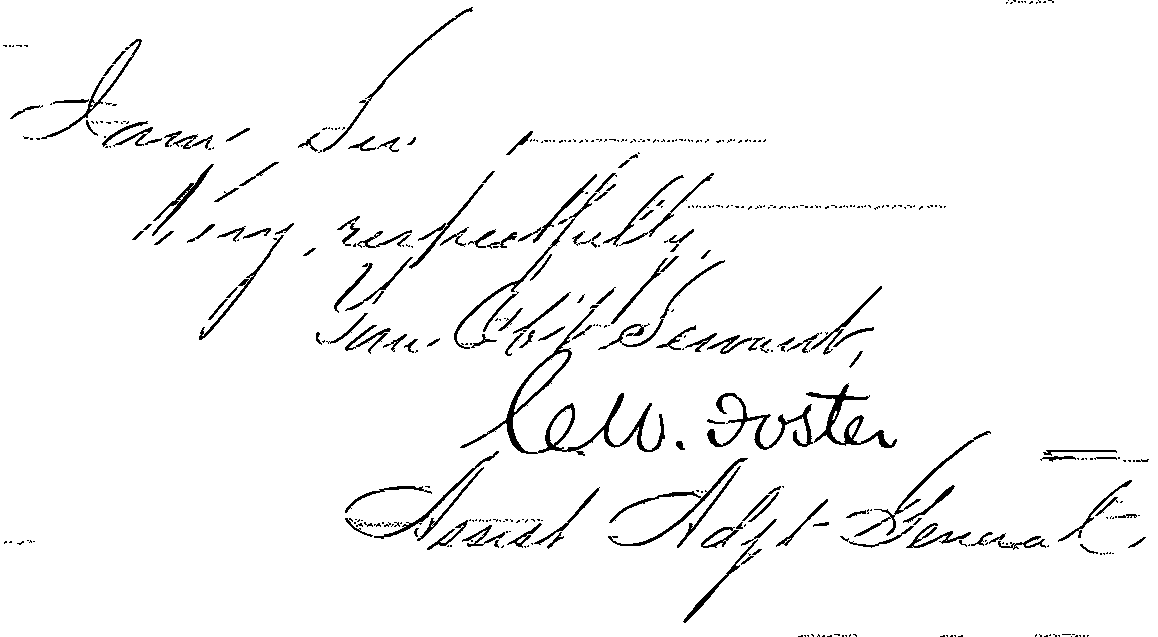 I am Sir
Very respectfully,
Your Obt Servant,
C. W. Foster
Assist Adjt General.